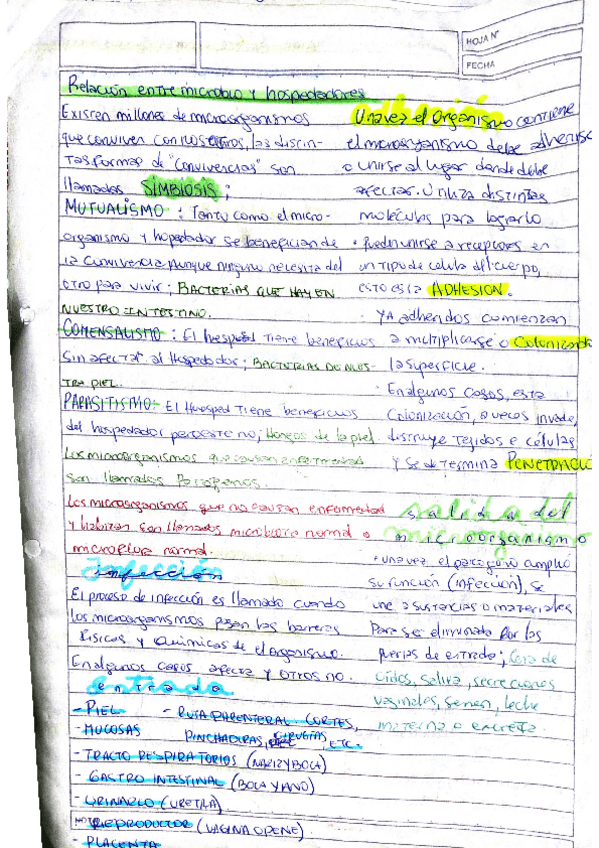 HOJA N°
FECHA
Relación entre microbio y hospedadores
Existen millones de microorganismos
que conviven con nosotros, las distin-
tas formas de "convivencias" son
llamadas SIMBIOSIS;
MUTUALISMO: Tanto como el micro-
organismo y hopedador se benefician de
la convivencia aunque ninguno necesita del
otro para vivir; BACTERIAS QUE HAY EN
NUESTRO INTESTINO.
COMENSALISMO: El huesped tiene beneficios
sin afectar al Hospedador; BACTERIAS DE NUES-
TRA PIEL.
PARASITISMO: El Huesped tiene beneficios
del hospedador pero este no; Hongos de la piel
Los microorganismos que causan enfermedad
son llamados Patogenos.
Los microorganismos que no causan enfermedad
y habitan son llamados microbiota normal o
microflora normal.
infección
El proceso de infección es llamado cuando
los microorganismos pasan las barreras
físicas y químicas de el organismo.
En algunos casos afecta y otros no.
entrada
- PIEL - RUTA PARENTERAL: CORTES,
- MUCOSAS PINCHADURAS, CIRUGÍAS, ETC.
- TRACTO RESPIRATORIOS (NARIZ Y BOCA)
- GASTRO INTESTINAL (BOCA Y ANO)
- URINARIO (URETRA)
- REPRODUCTOR (VAGINA O PENE)
- PLACENTA
adhesión
Una vez el organismo contiene
el microorganismo debe adherirse
o unirse al lugar donde debe
afectar. Utiliza distintas
moléculas para lograrlo
• Pueden unirse a receptores en
un tipo de celula del cuerpo,
esto es la ADHESION.
• YA adheridos comienzan
a multiplicarse o Colonizando
la superficie.
• En algunos casos, esta
Colonización, a veces invade,
distruye tejidos e células
y se determina PENETRACIÓN
salida del
microorganismo
• una vez el patogeno amplio
su función (infección), se
une a sustancias o materiales
Para ser eliminado por las
puertas de entrada;
oidos, saliva, secreciones
vaginales, semen, leche
materna o excreta.